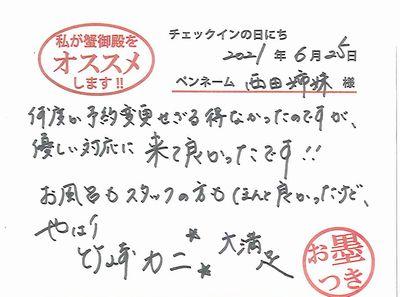 私が蟹御殿を
オススメ
します!!
チェックインの日にち
2021年6月25日
ペンネーム 西田姉妹 様
何度か予約変更せざる得なかったのですが、
優しい対応に 来て良かったです!!
お風呂もスタッフの方もほんと良かったけど、
やはり
竹崎カニ * 大満足 *
お墨
つき